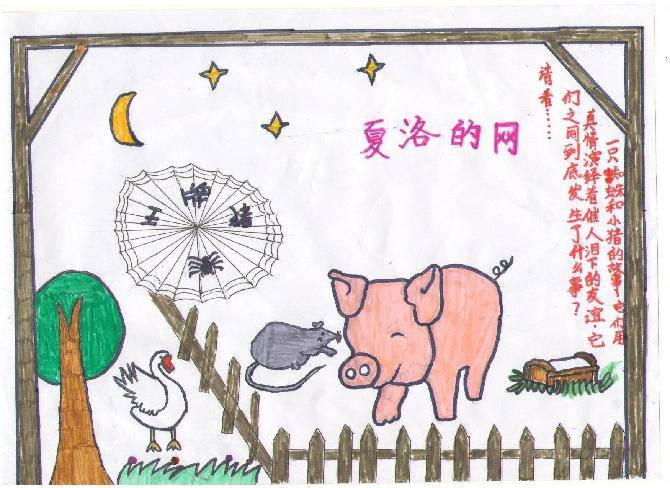 夏洛的网
一只蜘蛛和小猪的故事,它们用
真情演绎着催人泪下的友谊.它
们之间到底发生了什么事?
请看……
王